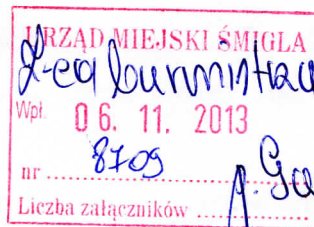 URZĄD MIEJSKI ŚMIGLA
Z-ca burmistrza
Wpł. 06. 11. 2013
nr ..... 8709
Liczba załączników .....